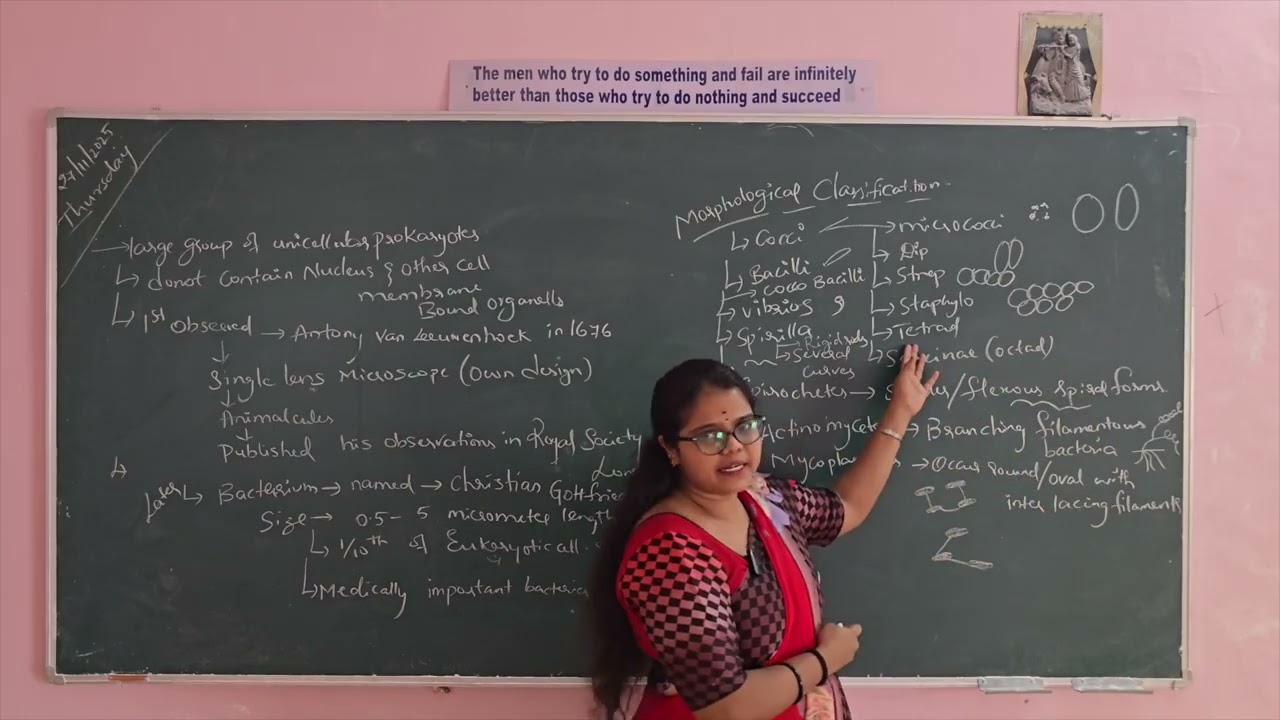 The men who try to do something and fail are infinitely
better than those who try to do nothing and succeed
27/11/2025
Thursday
large group of unicellular prokaryotes
donot contain Nucleus & other cell
membrane
Bound organells
1st Observed → Antony Van Leeuwenhoek in 1676
Single lens Microscope (Own design)
Animalcules
Published his observations in Royal Society
Later Bacterium → named → Christian Gottfried
Size → 0.5 - 5 micrometer length
1/10th of Eukaryotic cell
Medically important bacteria
Morphological Classification
Cocci
Bacilli
Cocco Bacilli
Vibrios
Spirilla
Rigid
Several
curves
micrococci
Dip
Strep
Staphylo
Tetrad
(octad)
/flexous spiral forms
Actinomycet → Branching filamentous
bacteria
Mycopla → Occur round/oval with
inter lacing filaments